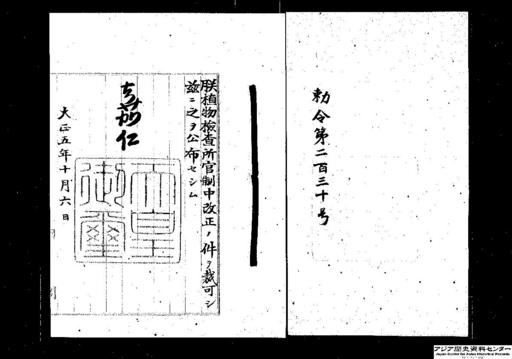 勅令第二百三十号
朕植物検査所官制中改正ノ件ヲ裁可シ
玆ニ之ヲ公布セシム
嘉仁
天皇御璽
大正五年十月六日
アジア歴史資料センター
Japan Center for Asian Historical Records